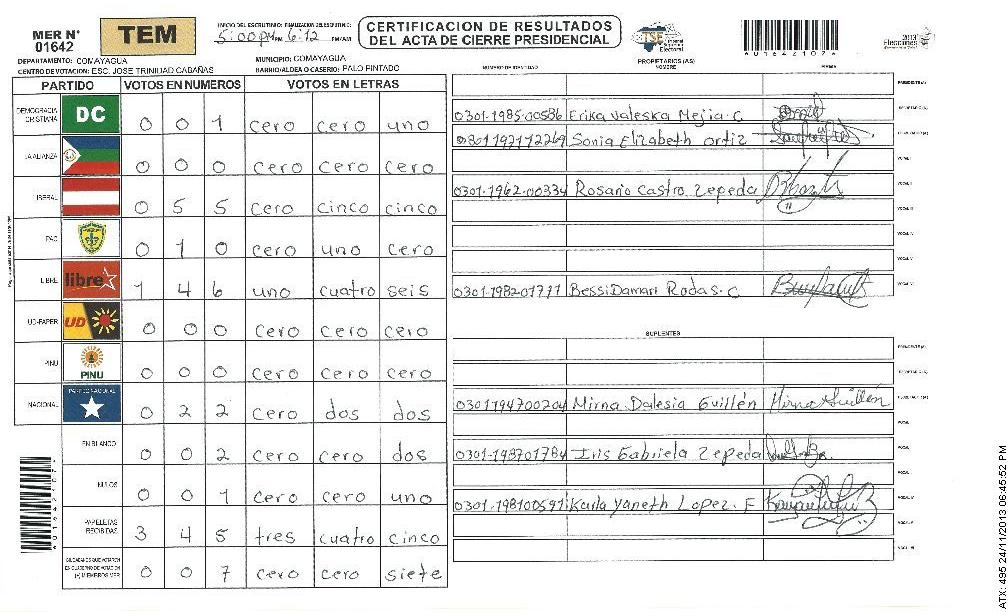 MER N° 01642
TEM
INICIO DEL ESCRUTINIO: 5:00 PM FINALIZACION DEL ESCRUTINIO: 6:12 PM/AM
CERTIFICACION DE RESULTADOS
DEL ACTA DE CIERRE PRESIDENCIAL
TSE Tribunal Supremo Electoral
4016421074
2013 Elecciones
DEPARTAMENTO: COMAYAGUA MUNICIPIO: COMAYAGUA
CENTRO DE VOTACION: ESC. JOSE TRINIDAD CABAÑAS BARRIO/ALDEA O CASERIO: PALO PINTADO
PROPIETARIOS (AS)
NUMERO DE IDENTIDAD NOMBRE FIRMA
PARTIDO VOTOS EN NUMEROS VOTOS EN LETRAS
DEMOCRACIA CRISTIANA DC 0 0 1 cero cero uno
LA ALIANZA 0 0 0 cero cero cero
LIBERAL 0 5 5 cero cinco cinco
PAC 0 1 0 cero uno cero
LIBRE libre 1 4 6 uno cuatro seis
UD-FAPER UD 0 0 0 cero cero cero
PINU PINU 0 0 0 cero cero cero
NACIONAL PARTIDO NACIONAL 0 2 2 cero dos dos
EN BLANCO 0 0 2 cero cero dos
NULOS 0 0 1 cero cero uno
PAPELETAS RECIBIDAS 3 4 5 tres cuatro cinco
CIUDADANOS QUE VOTARON EN EL CUADERNO DE VOTACION (+) MIEMBROS MER 0 0 7 cero cero siete
PRESIDENTE (A)
0301-1985-00586 Erika Valeska Mejia C SECRETARIO (A)
0801192172269 Sonia Elizabeth ortiz
VOCAL I
0301-1962-00334 Rosario Castro Zepeda VOCAL II
VOCAL III
VOCAL IV
VOCAL V
0301-1982-01777 Bessi Damari Rodas. C VOCAL VI
SUPLENTES
PRESIDENTE (A)
SECRETARIO (A)
0301194700204 Mirna Dalesia Guillén Mirna Guillén
0301-198701784 Iris Gabriela Zepeda
0301-198100597 Karla Yaneth Lopez. F
ATX: 495 24/11/2013 06:45:52 PM